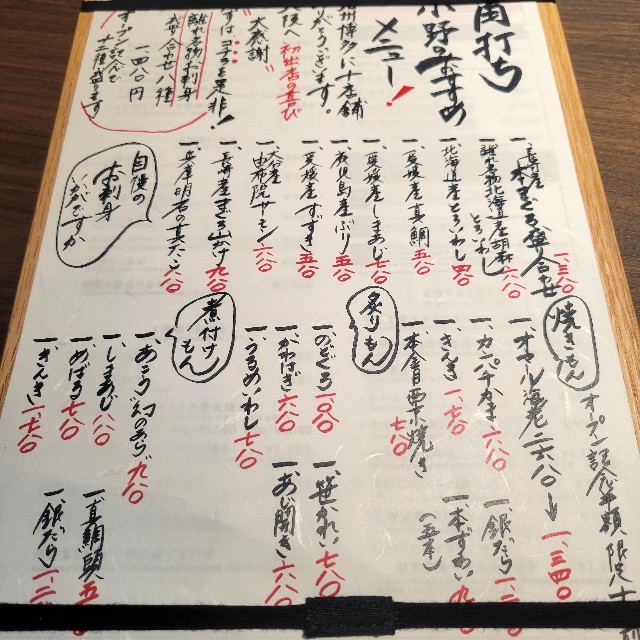 角打ち
小野のおすすめ
メニュー!
九州博多に十店舗
ありがとうございます。
大阪へ初出店の喜び
"大感謝"
まずはココを是非!
離れ名物刺身
盛り合わせ八種
一、四八〇円
オープン記念で
十二種盛ります
一、長崎産本まぐろ盛合せ 一、三八〇
一、離れ名物北海道産胡麻とろいわし 六八〇
一、北海道産とろいわし 四八〇
一、愛媛産真鯛 五八〇
一、愛媛産しまあじ 七八〇
一、鹿児島産ぶり 五八〇
一、愛媛産すずき 五八〇
一、大分産由布院サーモン 六八〇
一、長崎産まぐろ山かけ 九八〇
一、兵庫明石の真だこ 六八〇
自慢の
お刺身
いかがですか
焼きもん
オープン記念
一、オマール海老 二、六八〇→一、三四〇
一、カンパチかま 六八〇
一、銀だら 一、二
一、きんき 一、七八〇
一、本ずわい(五本) 九
一、本舎育栗焼き 七八〇
炙りもん
一、のどぐろ 一、〇八〇
一、笹かれい 七八〇
一、かわはぎ 六八〇
一、あじ開き 六八〇
一、うるめいわし 七八〇
煮付けもん
一、あこう(幻のあら) 九八〇
一、しまあじ 八八〇
一、真鯛頭 五
一、めばる 七八〇
一、銀だら 一、二
一、きんき 一、七八〇